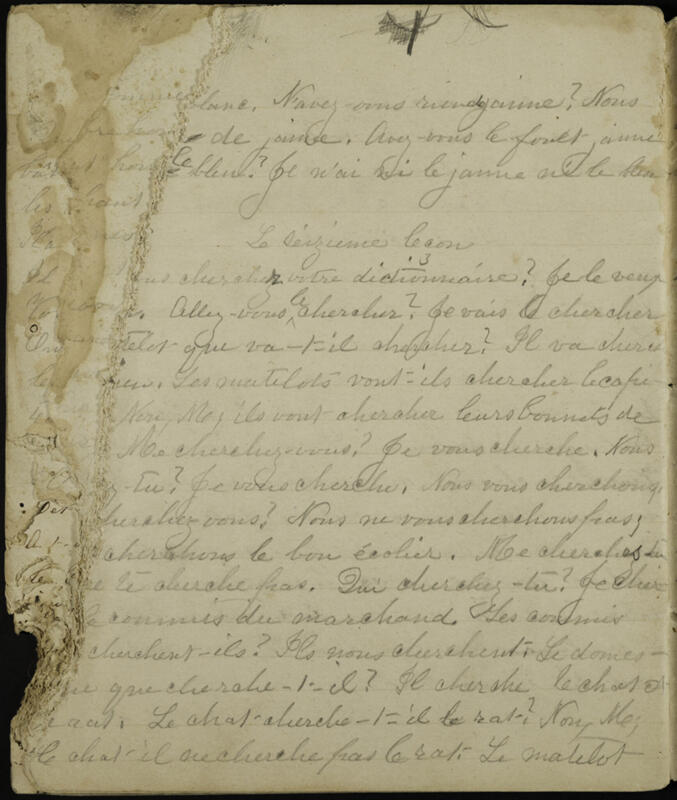 blanc. N'avez-vous rien de jaune? Nous
de jaune. Avez-vous le forêt jaune
le bleu? Je n'ai ni le jaune ni le bleu
Le séizieme lecon
cherchez votre dictionnaire? Je le veux
Allez-vous le chercher? Je vais le chercher
que va-t-il chercher? Il va cherc
Les matelots vont-ils chercher le capi
Non, M; ils vont chercher leurs bonnets de
Me cherchez-vous? Je vous cherche. Nous
z-tu? Je vous cherche. Nous vous cherchons,
herchez-vous? Nous ne vous cherchons pas;
cherchons le bon écolier. Me cherches-tu
te cherche pas. Qui cherchez-tu? Je cher
le commis du marchand. Les commis
cherchent-ils? Ils nous cherchent. Le domes-
que cherche-t-il? Il cherche le chat et
Le chat cherche-t-il le rat? Non, M;
le chat il ne cherche pas le rat. Le matelot